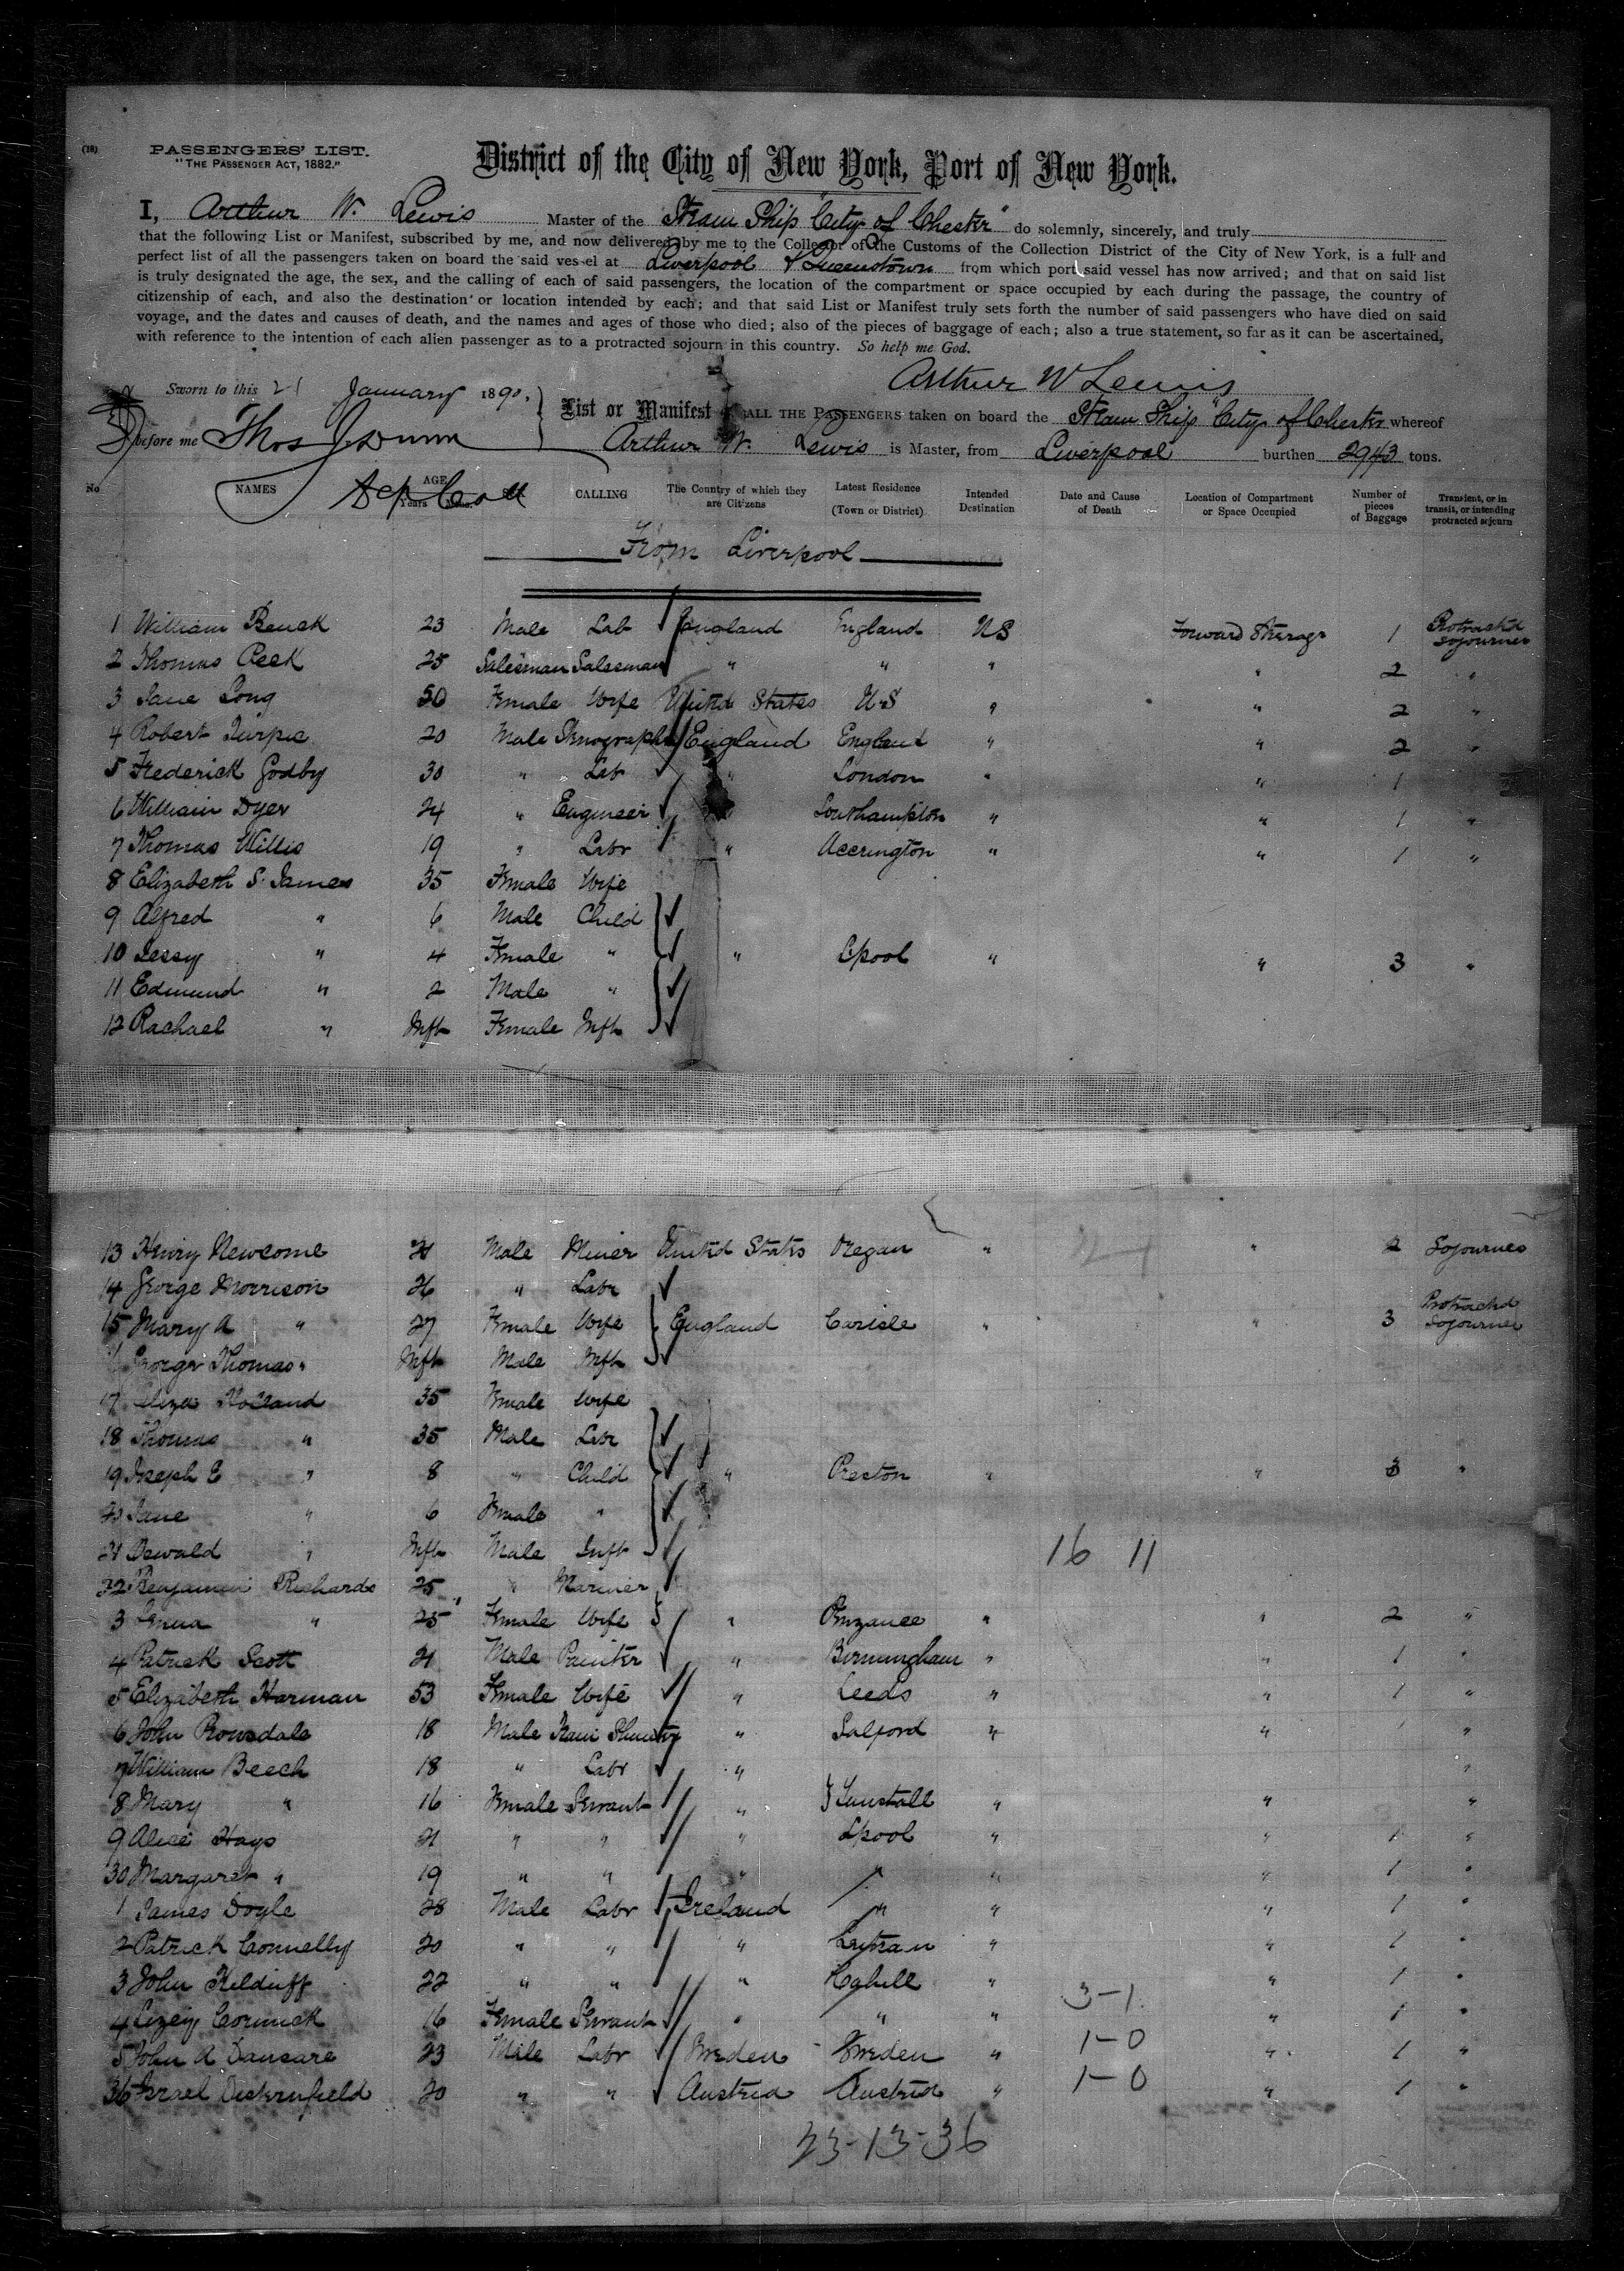 (18)
PASSENGERS' LIST.
"THE PASSENGER ACT, 1882."
District of the City of New York, Port of New York.
I, Arthur W. Lewis Master of the Steam Ship "City of Chester" do solemnly, sincerely, and truly
that the following List or Manifest, subscribed by me, and now delivered by me to the Collector of the Customs of the Collection District of the City of New York, is a full and
perfect list of all the passengers taken on board the said vessel at Liverpool & Queenstown from which port said vessel has now arrived; and that on said list
is truly designated the age, the sex, and the calling of each of said passengers, the location of the compartment or space occupied by each during the passage, the country of
citizenship of each, and also the destination or location intended by each; and that said List or Manifest truly sets forth the number of said passengers who have died on said
voyage, and the dates and causes of death, and the names and ages of those who died; also of the pieces of baggage of each; also a true statement, so far as it can be ascertained,
with reference to the intention of each alien passenger as to a protracted sojourn in this country. So help me God.
Arthur W Lewis
Sworn to this 21 January 1890.
List or Manifest of ALL THE PASSENGERS taken on board the Steam Ship "City of Chester whereof
before me Thos J Dunn
Arthur W. Lewis is Master, from Liverpool burthen 2943 tons.
Dep Coll
No NAMES AGE Years Mths. SEX CALLING The Country of which they are Citizens Latest Residence (Town or District) Intended Destination Date and Cause of Death Location of Compartment or Space Occupied Number of pieces of Baggage Transient, or in transit, or intending protracted sojourn
From Liverpool
1 William 23 Male Lab England England US Forward Steerage 1 Protract'd Sojourner
2 Thomas Peek 25 Salesman Salesman " " " " 2 "
3 Jane Long 50 Female Wife United States U.S " " 2 "
4 Robert Turpie 20 Male Stenographer England England " " 2 "
5 Frederick Godby 30 " Lab " London " " 1 "
6 William Dyer 24 " Engineer " Southampton " " 1 "
7 Thomas Willis 19 " Labr " Accrington " " 1 "
8 Elizabeth S. James 35 Female Wife
9 Alfred " 6 Male Child
10 Jessy " 4 Female " " L'pool " " 3 "
11 Edmund " 2 Male "
12 Rachael " Inft Female Inft
13 Henry Newcome 21 Male Miner United States Oregan " " 2 Sojourner
14 George Morrison 26 " Labr
15 Mary A " 27 Female Wife England Carisle " " 3 Protract'd Sojourner
George Thomas " Inft Male Inft
17 Eliza Holland 35 Female Wife
18 Thomas " 35 Male Labr
19 Joseph E " 8 " Child " Preston " " 3 "
20 Jane " 6 Female "
21 Oswald " Inft Male Inft
16 11
22 Benjamin Richards 25 " Mariner
3 Emma " 25 Female Wife " Penzance " " 2 "
4 Patrick Scott 21 Male Painter " Birmingham " " 1 "
5 Elizabeth Harman 53 Female Wife " Leeds " " 1 "
6 John Rowsdale 18 Male " Salford " " 1 "
7 William Beech 18 " Labr " "
8 Mary " 16 Female Servant " Tunstall " " "
9 Alice Hays 21 " " " L'pool " " 1 "
30 Margaret " 19 " " " " " " 1 "
1 James Doyle 28 Male Labr Ireland " " " 1 "
2 Patrick Connelly 20 " " " Leitram " " 1 "
3 John Kilduff 22 " " " " " 1 "
3-1
4 Lizey Cormick 16 Female Servant " " " " 1 "
1-0
5 John A 23 Male Labr Sweden Sweden " " 1 "
1-0
36 Israel 20 " " Austria Austria " " 1 "
23-13-36